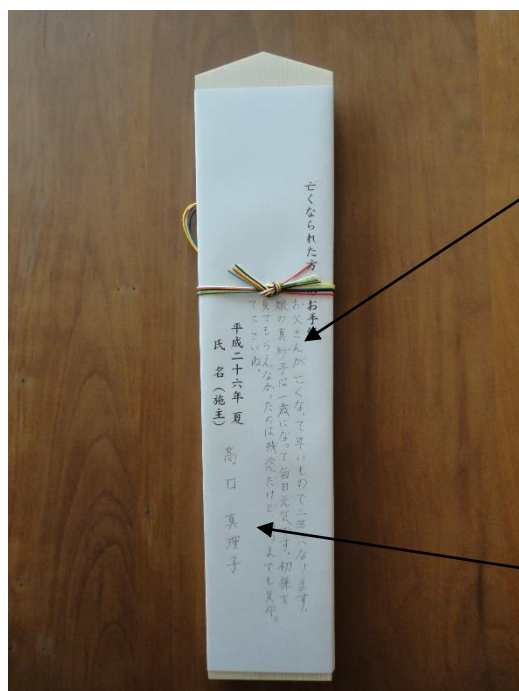 亡くなられた方 のお手
お父さんが亡くなって早いもので二年になります。
娘の真紗子は一歳になって毎日元気です。初孫を
見てもらえなかったのは残念だけど、 までも見守っ
てて下さいね。
平成二十六年 夏
氏 名(施主)
高口 真理子